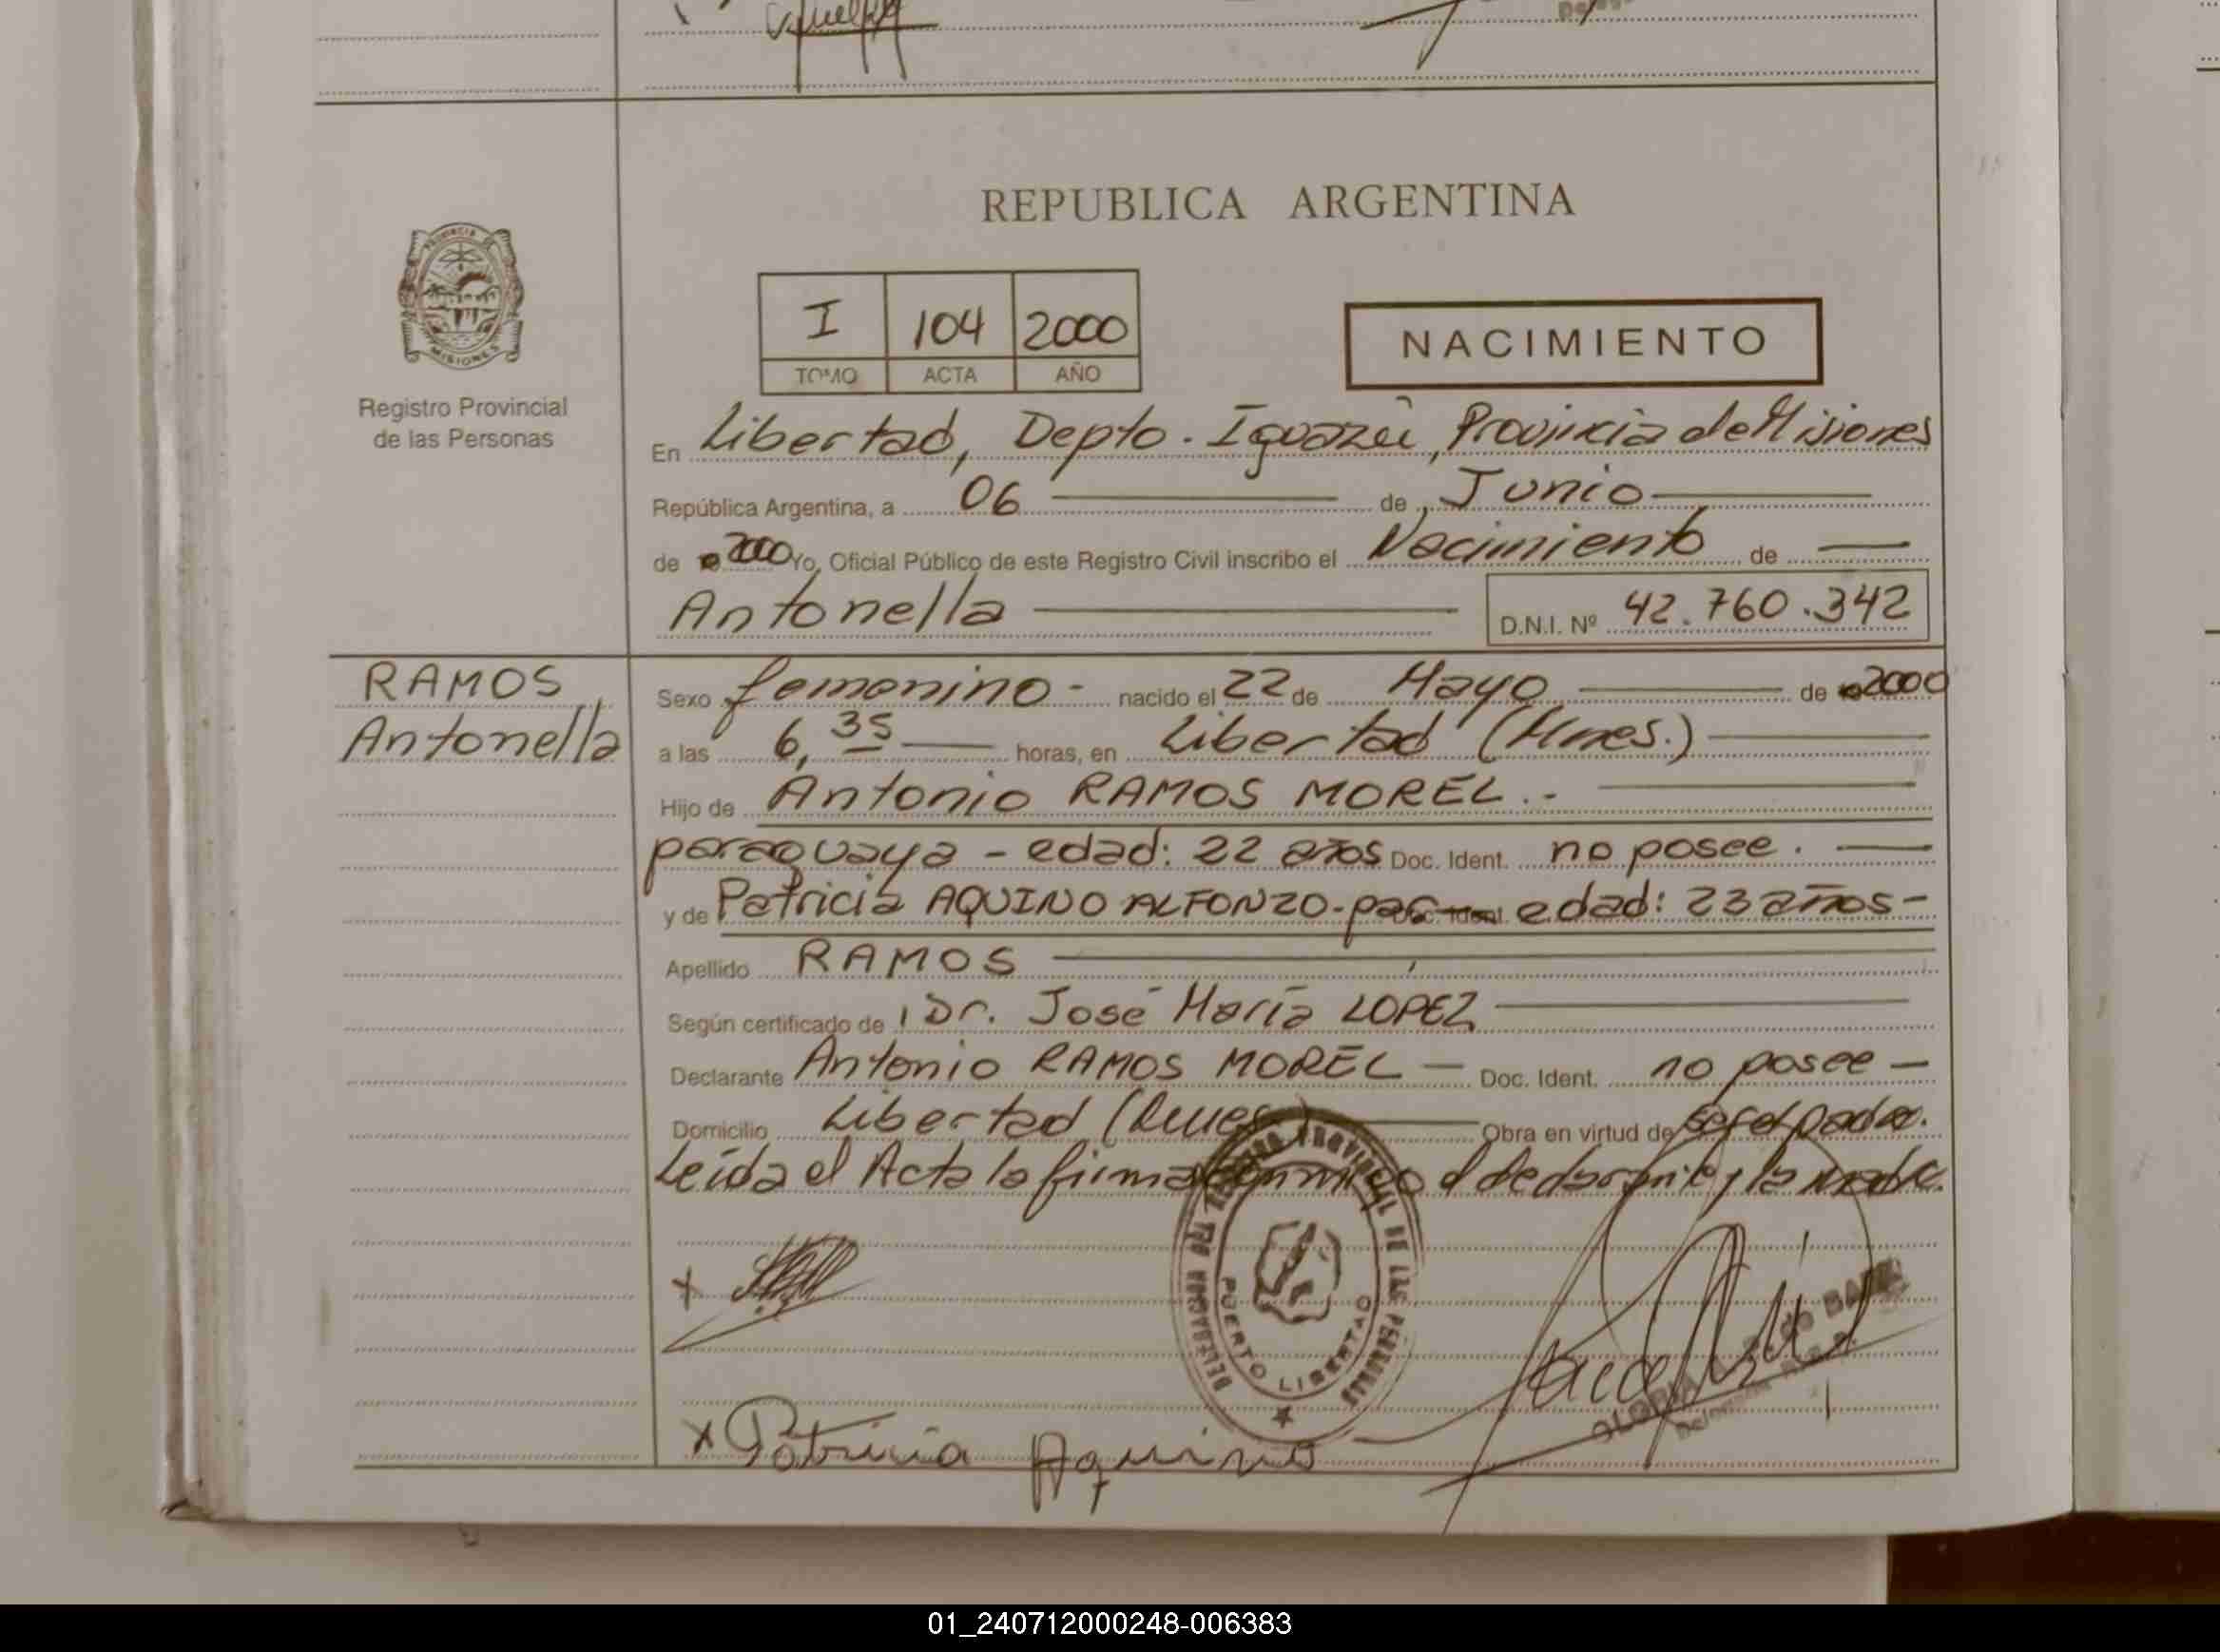 REPUBLICA ARGENTINA
PROVINCIA DE
MISIONES
Registro Provincial
de las Personas
I 104 2000
TOMO ACTA AÑO
NACIMIENTO
En Libertad, Depto. Iguazú, Provincia de Misiones
República Argentina, a 06 de Junio
de 2000 Yo, Oficial Público de este Registro Civil inscribo el Nacimiento de
Antonella
D.N.I. Nº 42.760.342
RAMOS
Antonella
Sexo femenino - nacido el 22 de Mayo de 2000
a las 6,35 horas, en Libertad (Mnes.)
Hijo de Antonio RAMOS MOREL.-
paraguaya - edad: 22 años Doc. Ident. no posee.
y de Patricia AQUINO ALFONZO - par- edad: 23 años-
Apellido RAMOS
Según certificado de Dr. José María LOPEZ
Declarante Antonio RAMOS MOREL - Doc. Ident. no posee -
Domicilio Libertad (Mnes) Obra en virtud de ser el padre.
Leída el Acta la firma conmigo el declarante y la madre.
DELEGACION
PROVINCIAL DE LAS PERSONAS
PUERTO LIBERTAD
x
GLORIA de
x Patricia Aquino
01_240712000248-006383